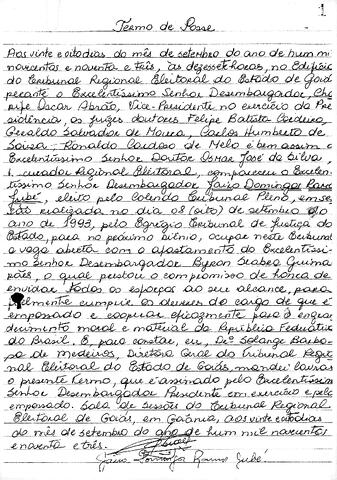 1
Termo de Posse
Aos vinte e oito dias do mês de setembro do ano de hum mil
novecentos e noventa e três, às dezessete horas, no Edifício
do Tribunal Regional Eleitoral do Estado de Goiás
perante o Excelentíssimo Senhor Desembargador, Cha
ripe Oscar Abrão, Vice-Presidente no exercício da Pre
sidência, os juízes doutores Felipe Batista Cordeiro,
Geraldo Salvador de Moura, Carlos Humberto de
Sousa, Ronaldo Cardoso de Melo e bem assim o
Excelentíssimo Senhor Doutor Osmar José da Silva,
curador Regional Eleitoral, compareceu o Excelen
tíssimo Senhor Desembargador Jairo Domingos Ramos
Jubé, eleito pelo Colendo Tribunal Pleno, em ses
são realizada no dia 08 (oito) de setembro do
ano de 1993, pelo Egrégio Tribunal de Justiça do
Estado, para no próximo biênio, ocupar neste Tribunal
a vaga aberta com o afastamento do Excelentíssi
mo Senhor Desembargador Byron Seabra Guima
rães, o qual prestou o compromisso de honra de
envidar todos os esforços ao seu alcance, para
fielmente cumprir os deveres do cargo de que é
empossado e cooperar eficazmente para o engran
decimento moral e material da República Federativa
do Brasil. E, para constar, eu, Drª Solange Barbo
sa de Medeiros, Diretora Geral do Tribunal Regio
nal Eleitoral do Estado de Goiás, mandei lavrar
o presente termo, que é assinado pelo Excelentíssimo
Senhor Desembargador Presidente em exercício e pelo
empossado. Sala de sessões do Tribunal Regional
Eleitoral de Goiás, em Goiânia, aos vinte e oito dias
do mês de setembro do ano de hum mil novecentos
e noventa e três.
Jairo Domingos Ramos Jubé.